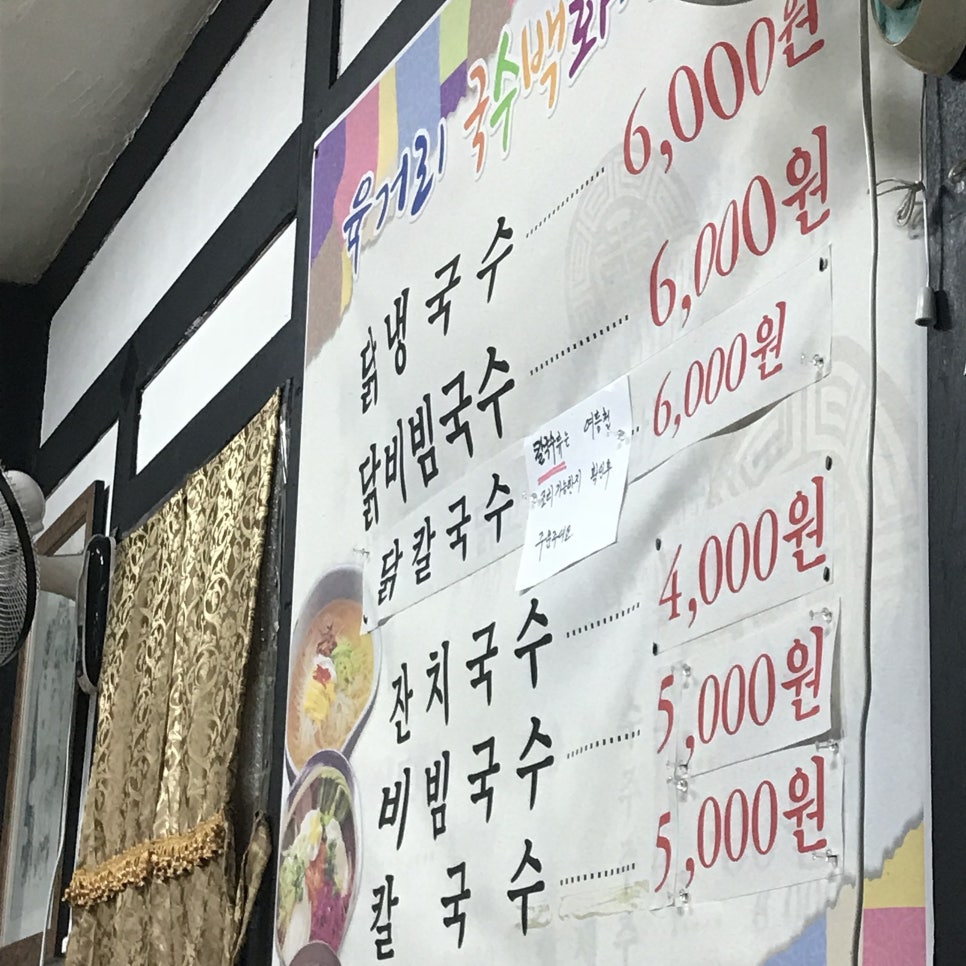 육거리 국수백화
닭냉국수 6,000원
닭비빔국수 6,000원
닭칼국수 6,000원
칼국수류는
조리 가능한지 확인후
주문주세요
잔치국수 4,000원
비빔국수 5,000원
칼국수 5,000원